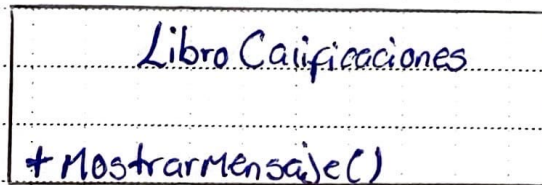 Libro Calificaciones
+ MostrarMensaje()